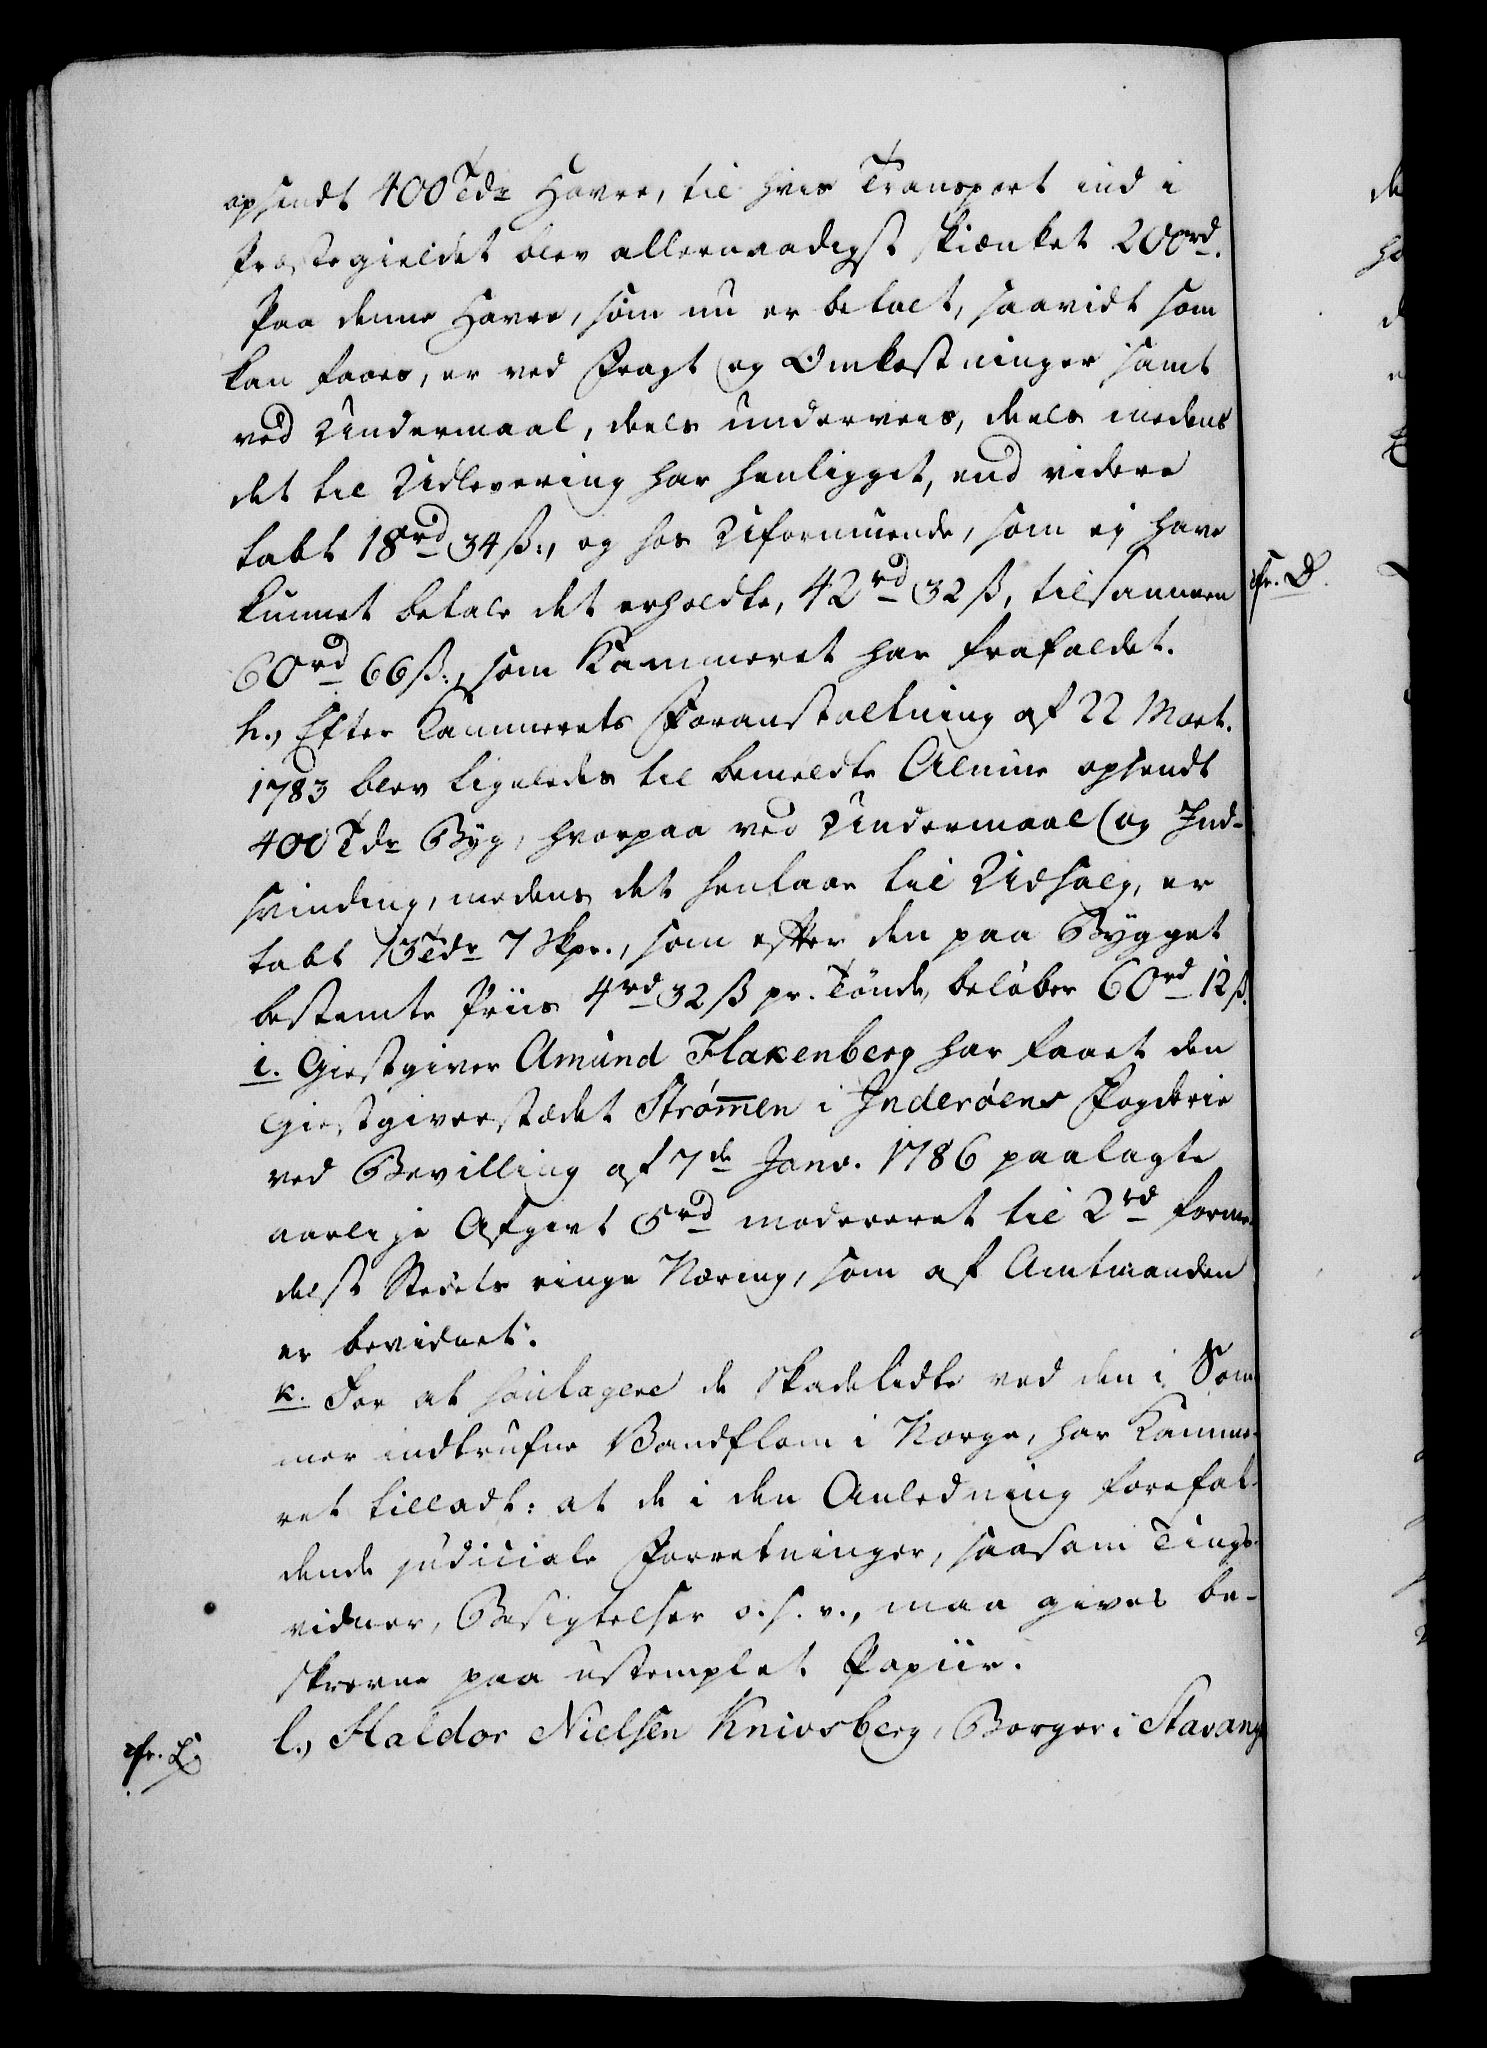 opsendt 400 Tdr Havre, til hvis Transport ind i
Præstegieldet blev allernaadigst skiænket 200rd.
Paa denne Havre, som nu er betalt, saavidt som
kan faaes, er ved Fragt og Omkostninger samt
ved Undermaal, deels underveis, deels medens
det til Udlevering har henligget, end videre
tabt 18rd 34 ß:, og hos Uformuende, som ej have
kunnet betale det erholdte, 42rd 32 ß, tilsammen
cfr. D.
60rd 66 ß:, som Kammeret har frafaldet.
h., Efter Kammerets Foranstaltning af 22 Mart.
1783 blev ligeledes til bemeldte Almue opsendt
400 Tdr Byg, hvorpaa ved Undermaal og Ind-
svinding, medens det henlaae til Udsalg, er
tabt 13 Tdr 7 Skpr., som efter den paa Bygget
bestemte Priis 4rd 32 ß pr. Tönde, belöber 60rd 12 ß.
i. Giestgiver Amund Flakenberg har faaet den
Giestgiverstædet Strømmen i Inderöens Fogderie
ved Bevilling af 7de Janv. 1786 paalagte
aarlige Afgivt 5rd modereret til 2rd forme-
delst Stedets ringe Næring, som af Amtmanden
er bevidnet.
k. For at soulagere de Skadelidte ved den i Som-
mer indtrufne Vandflom i Norge, har Kamme-
ret tilladt: at de i den Anledning forefal-
dende judiciale Forretninger, saasom Tings-
vidner, Besigtelser o. s. v., maa gives be-
skrevne paa ustemplet Papiir.
l., Haldor Nielsen Knivsberg, Borger i Stavang